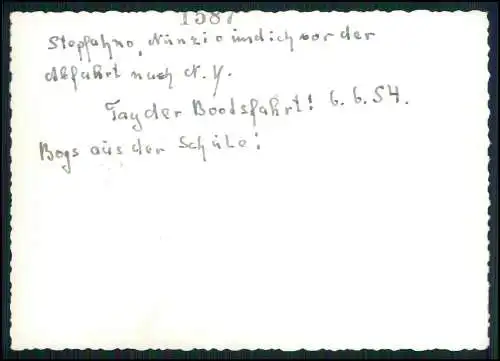 1587
Stepfahno, Nunzio und ich vor der
Abfahrt nach N.Y.
Tag der Bootsfahrt! 6.6.54.
Boys aus der Schule!